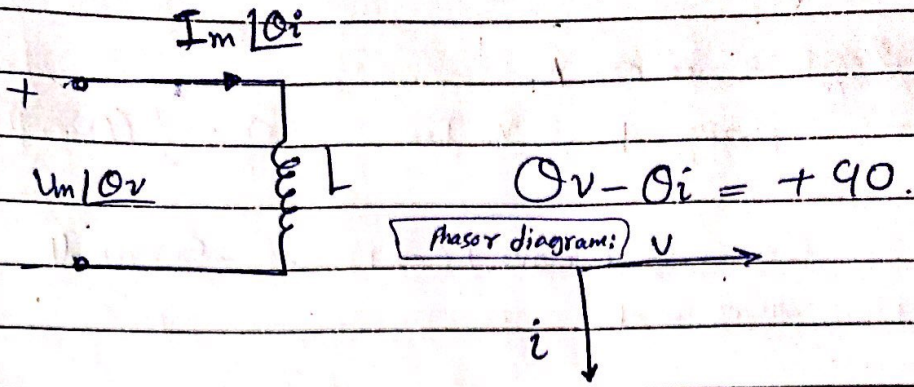 Im∠θi
+
Vm∠θv
L
θv - θi = +90.
Phasor diagram:
v
-
i